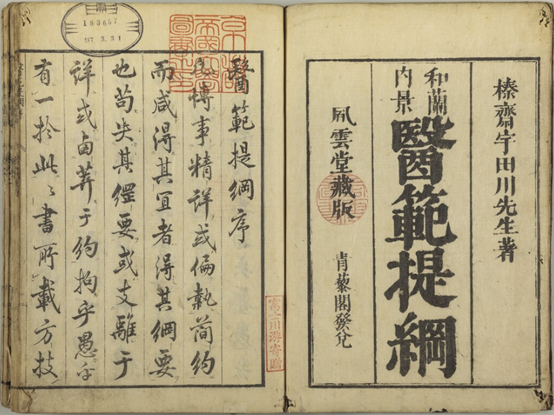 榛齋宇田川先生著
和蘭
内景
醫範提綱
風雲堂藏版
青藜閣發兌
醫範提綱序
博事精詳或偏執简約
而咸得其宜者得其綱要
也苟失其經要或支離于
詳或鹵莽于約拘乎愚乎
有一於此〻書所載方技
193607